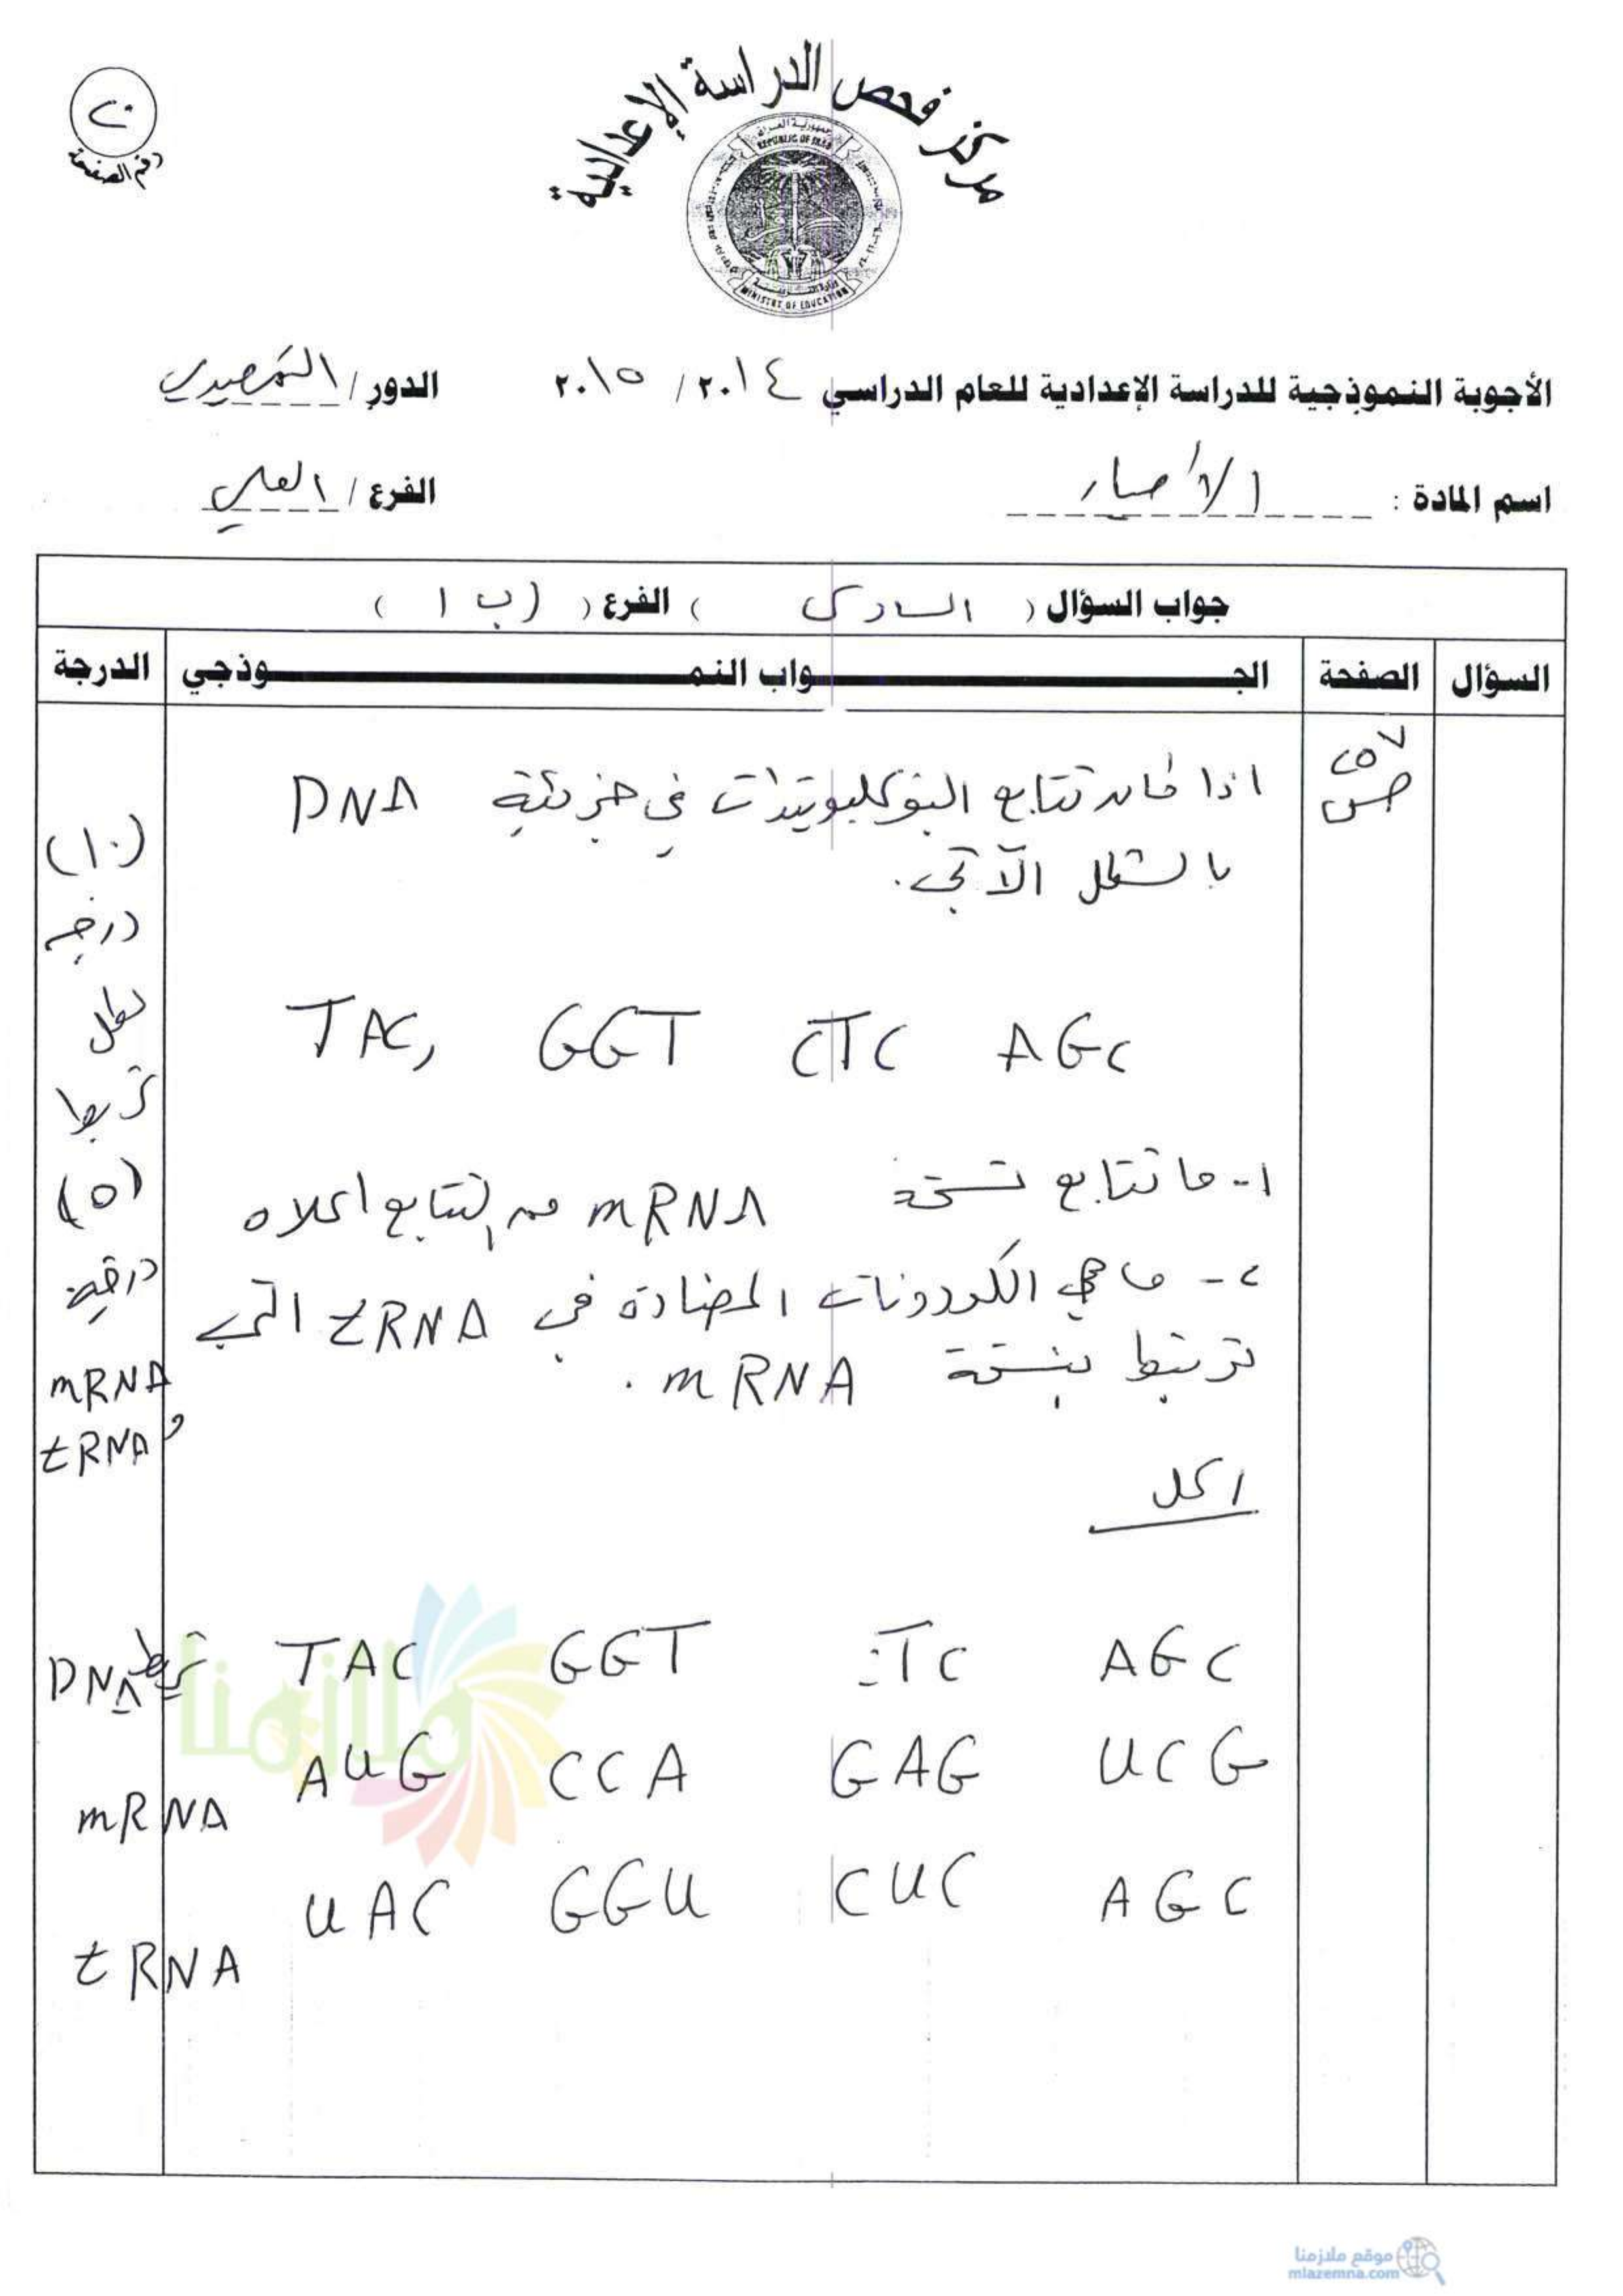 مركز فحص الدراسة الإعدادية
٢٠
رقم الصفحة
REPUBLIC OF IRAQ
MINISTRY OF EDUCATION
الأجوبة النموذجية للدراسة الإعدادية للعام الدراسي ٢٠١٤ / ٢٠١٥ الدور / التمهيدي
اسم المادة : الأحياء الفرع / العلمي
جواب السؤال ( السادس ) الفرع ( ( ب ١ )
السؤال الصفحة الجـواب النمـوذجي الدرجة
ص ٢٥٧
اذا كان تتابع النيوكليوتيدات في جزيئة DNA
بالشكل الآتي.
TAC, GGT CTC AGC
١- ما تتابع نسخة mRNA من التتابع اعلاه
٢- ما هي الكودونات المضادة في tRNA التي
ترتبط بنسخة mRNA.
الحل
(١٠)
درجة
لكل
(٥)
درجة
mRNA
و tRNA
شريط DNA TAC GGT CTC AGC
mRNA AUG CCA GAG UCG
tRNA UAC GGU CUC AGC
ملازمنا
موقع ملازمنا
mlazemna.com